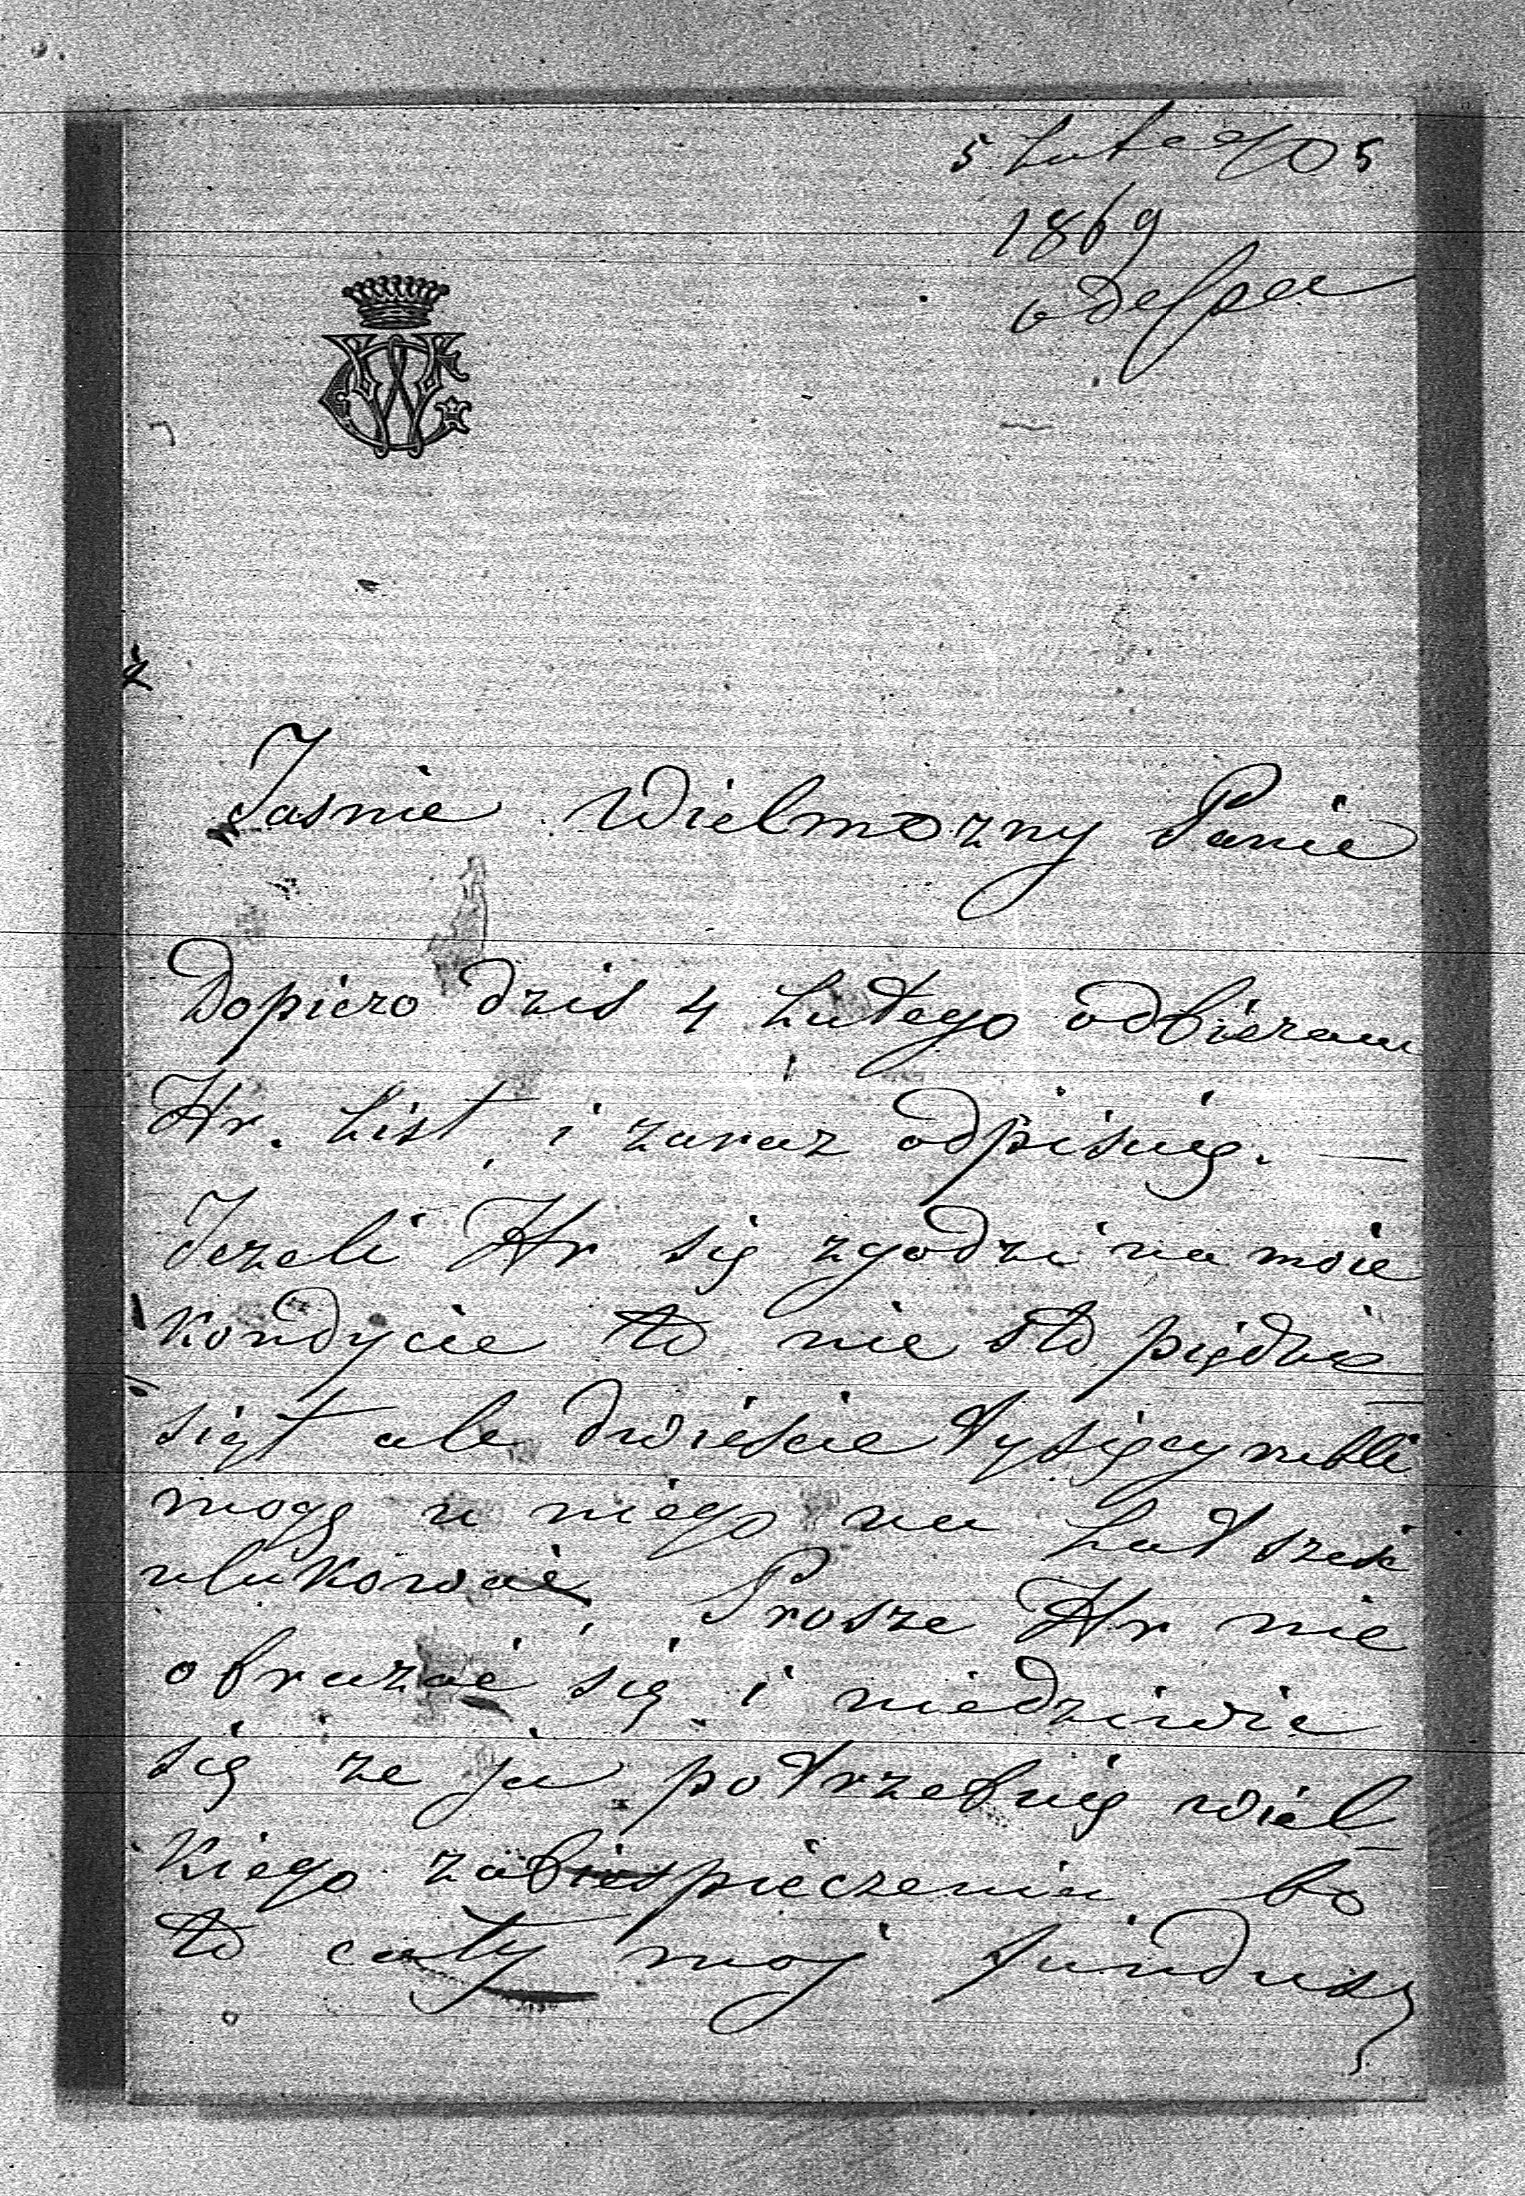 5 Lutego 5
1869
Odessa
Jasnie Wielmozny Panie
Dopiero dzis 4 Lutego odbieram
Hr. List, i zaraz odpisuię. —
Jezeli Hr się zgodzi na moie
kondycie to nie sto piędzie
siąt ale dwiescie tysięcy rubli
mogę u niego na Lat szesc
ulukować, Prosze Hr nie
obrazać się i niedziwic
się ze ja potrzebuię wiel
kiego zabiespieczenia bo
to cały moj fundusz